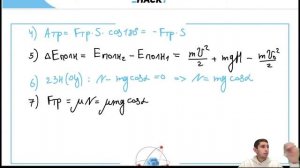 НАСК
4) Aтр = Fтр · S · cos180° = - Fтр · S
5) ΔEполн = Eполн₂ - Eполн₁ = mv²/2 + mgH - mv₀²/2
6) 2ЗН(Oy): N - mgcosα = 0 => N = mgcosα
7) Fтр = μN = μmgcosα